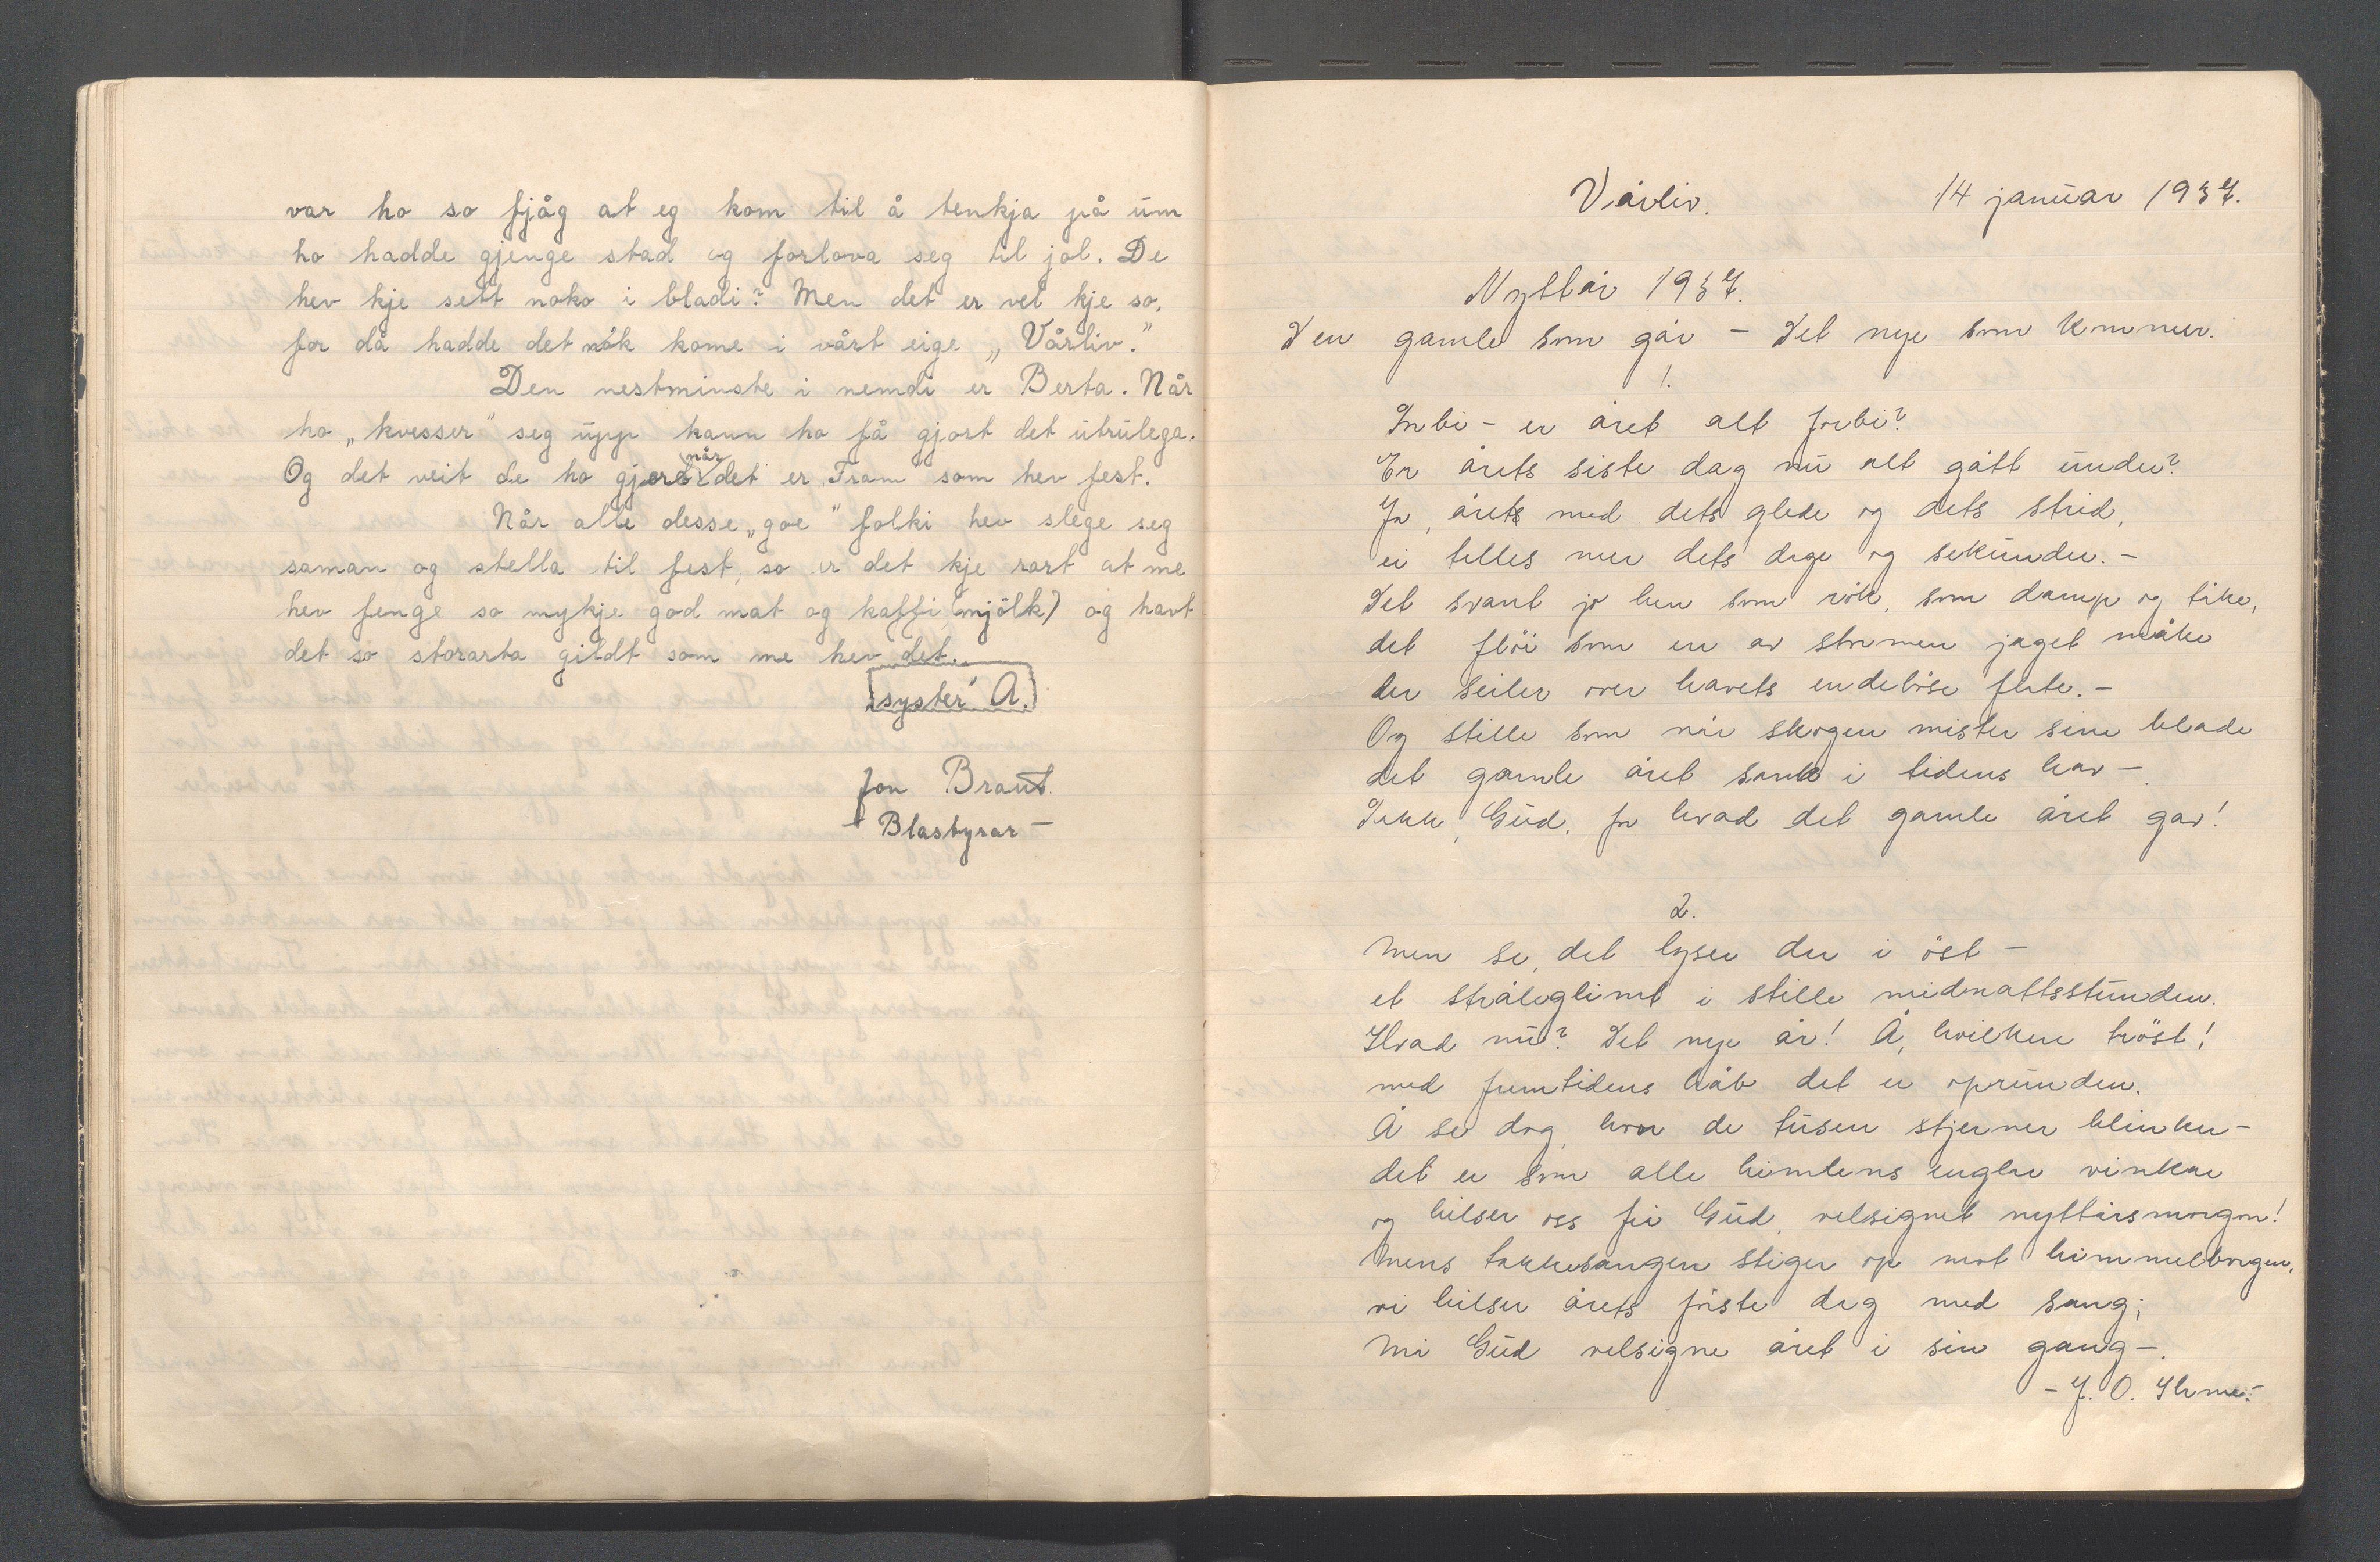 var ho so fjåg at eg kom til å tenkja på um
ho hadde gjenge stad og forlova seg til jol. De
hev kje sett noko i bladi? Men det er vel kje so,
for då hadde det nok kome i vårt eige „Vårliv."
Den nestminste i nemdi er Berta. Når
ho „kvesser" seg upp kann ho få gjort det utrulega.
når
Og det veit de ho gjerer det er Fram som hev fest.
Når alle desse „goe" folki hev slege seg
saman og stella til fest, so er det kje rart at me
hev fenge so mykje god mat og kaffi (mjölk) og havt
det so storarta gildt som me hev det.
syster A.
Jon Braut.
- Blastyrar -
Vårliv. 14 januar 1937.
Nyttår 1937.
Den gamle som går - Det nye som kommer.
1.
Forbi - er året alt forbi?
Er årets siste dag nu alt gått under?
Ja, årets med dets glede og dets strid,
ei telles mer dets dage og sekunder. -
Det svant jo hen som rök, som damp og tåke,
det flöi som en av stormen jaget måke
der seiler over havets endelöse flate. -
Og stille som når skogen mister sine blade
det gamle året sank i tidens hav -.
Takk, Gud, for hvad det gamle året gav!
2.
Men se, det lyser der i öst -
et stråleglimt i stille midnattsstunden.
Hvad nu? Det nye år! Å, hvilken tröst!
med fremtidens håb det er oprunden.
Å se dog, hvor de tusen stjerner blinker -
det er som alle himlens engler vinker
og hilser oss fra Gud, velsignet nyttårsmorgon!
Mens takkesangen stiger op mot himmelborgen,
vi hilser årets förste dag med sang;
Må Gud velsigne året i sin gang -.
- J. O.